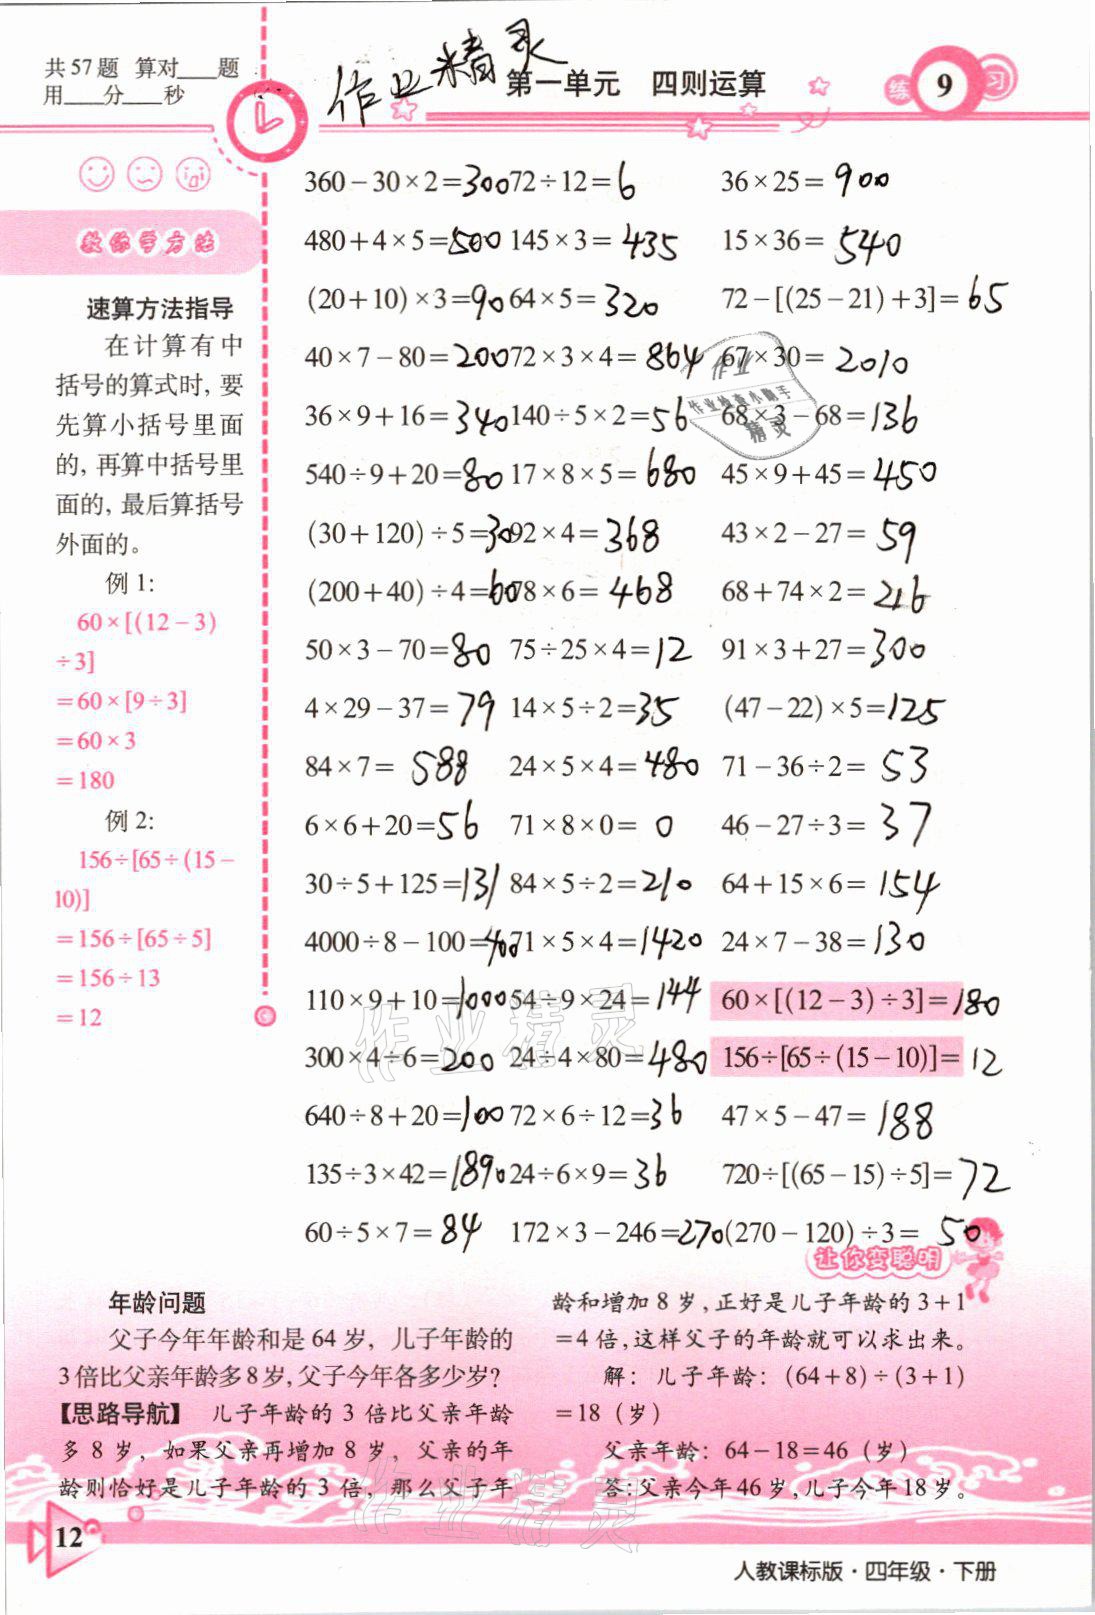 共57题 算对____题
用____分____秒
作业精灵
第一单元 四则运算
练 9 习
教你学方法
速算方法指导
在计算有中
括号的算式时,要
先算小括号里面
的,再算中括号里
面的,最后算括号
外面的。
例1:
60×[(12-3)
÷3]
=60×[9÷3]
=60×3
=180
例2:
156÷[65÷(15-
10)]
=156÷[65÷5]
=156÷13
=12
360-30×2=300 72÷12=6 36×25=900
480+4×5=500 145×3=435 15×36=540
(20+10)×3=90 64×5=320 72-[(25-21)+3]=65
40×7-80=200 72×3×4=864 67×30=2010
36×9+16=340 140÷5×2=56 68×3-68=136
540÷9+20=80 17×8×5=680 45×9+45=450
(30+120)÷5=30 92×4=368 43×2-27=59
(200+40)÷4=60 78×6=468 68+74×2=216
50×3-70=80 75÷25×4=12 91×3+27=300
4×29-37=79 14×5÷2=35 (47-22)×5=125
84×7=588 24×5×4=480 71-36÷2=53
6×6+20=56 71×8×0=0 46-27÷3=37
30÷5+125=131 84×5÷2=210 64+15×6=154
4000÷8-100=400 71×5×4=1420 24×7-38=130
110×9+10=1000 54÷9×24=144 60×[(12-3)÷3]=180
300×4÷6=200 24÷4×80=480 156÷[65÷(15-10)]=12
640÷8+20=100 72×6÷12=36 47×5-47=188
135÷3×42=1890 24÷6×9=36 720÷[(65-15)÷5]=72
60÷5×7=84 172×3-246=270 (270-120)÷3=50
作业
作业检查小助手
精灵
作业精灵
让你变聪明
年龄问题
父子今年年龄和是64岁,儿子年龄的
3倍比父亲年龄多8岁,父子今年各多少岁?
【思路导航】 儿子年龄的3倍比父亲年龄
多8岁,如果父亲再增加8岁,父亲的年
龄则恰好是儿子年龄的3倍,那么父子年
龄和增加8岁,正好是儿子年龄的3+1
=4倍,这样父子的年龄就可以求出来。
解:儿子年龄:(64+8)÷(3+1)
=18(岁)
父亲年龄:64-18=46(岁)
答:父亲今年46岁,儿子今年18岁。
作业精灵
12
人教课标版·四年级·下册